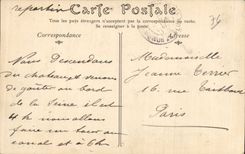 repartir
Carte Postale
Tous les pays étrangers n'acceptent pas la correspondance au recto.
Se renseigner à la poste
Correspondance
Adresse
Nous descendons
du chateau et venons
de goûter au bord
de la Seine il est
4 h nous allons
faire un tour au
canal et à 6 h
Mademoiselle
Jeanne
16, rue
Paris